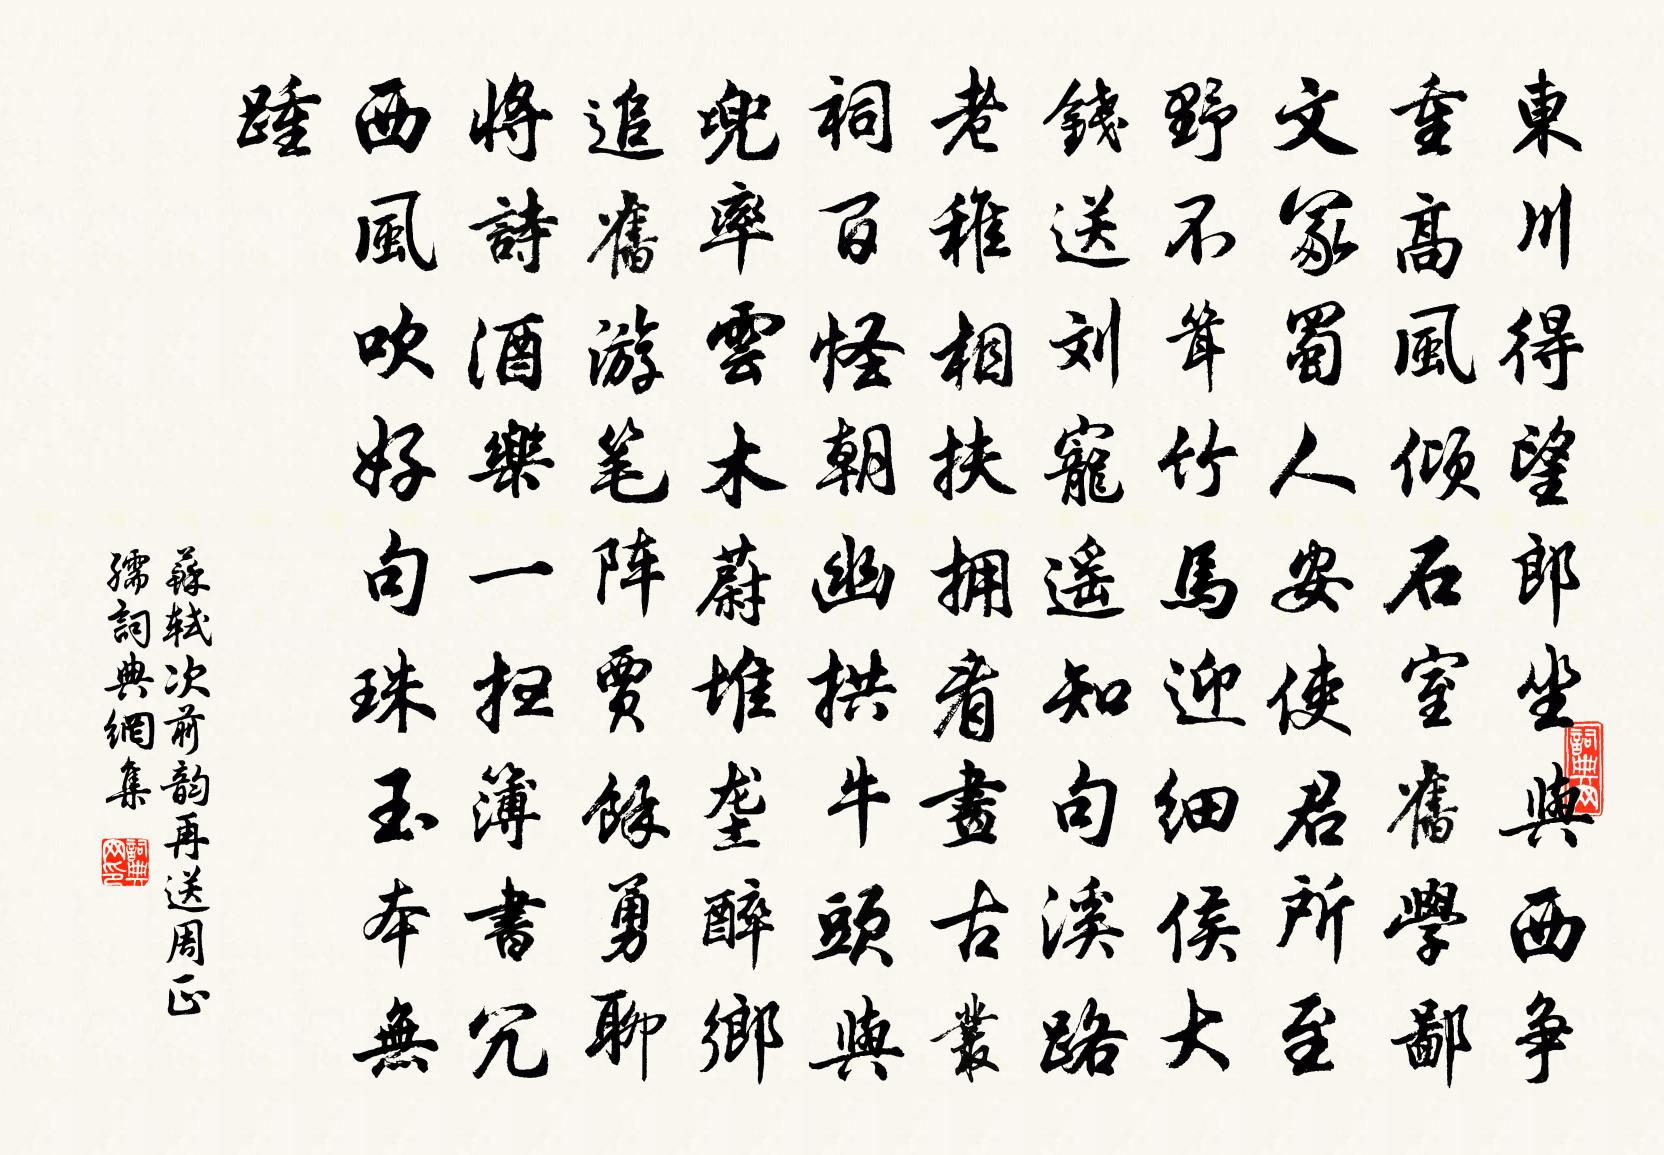 東川得望郎坐與西争
重高風倾石室舊學鄙
文冢蜀人安使君所至
野不耸竹馬迎细侯大
錢送刘寵遥知句溪路
老稚相扶拥看畫古叢
祠百怪朝幽拱牛頭與
兜率雲木蔚堆垄醉鄉
追舊游笔阵賈餘勇聊
將詩酒樂一扫簿書冗
西風吹好句珠玉本無
踵
蘇轼次前韵再送周正
孺詞典網集
詞典网
詞典网印